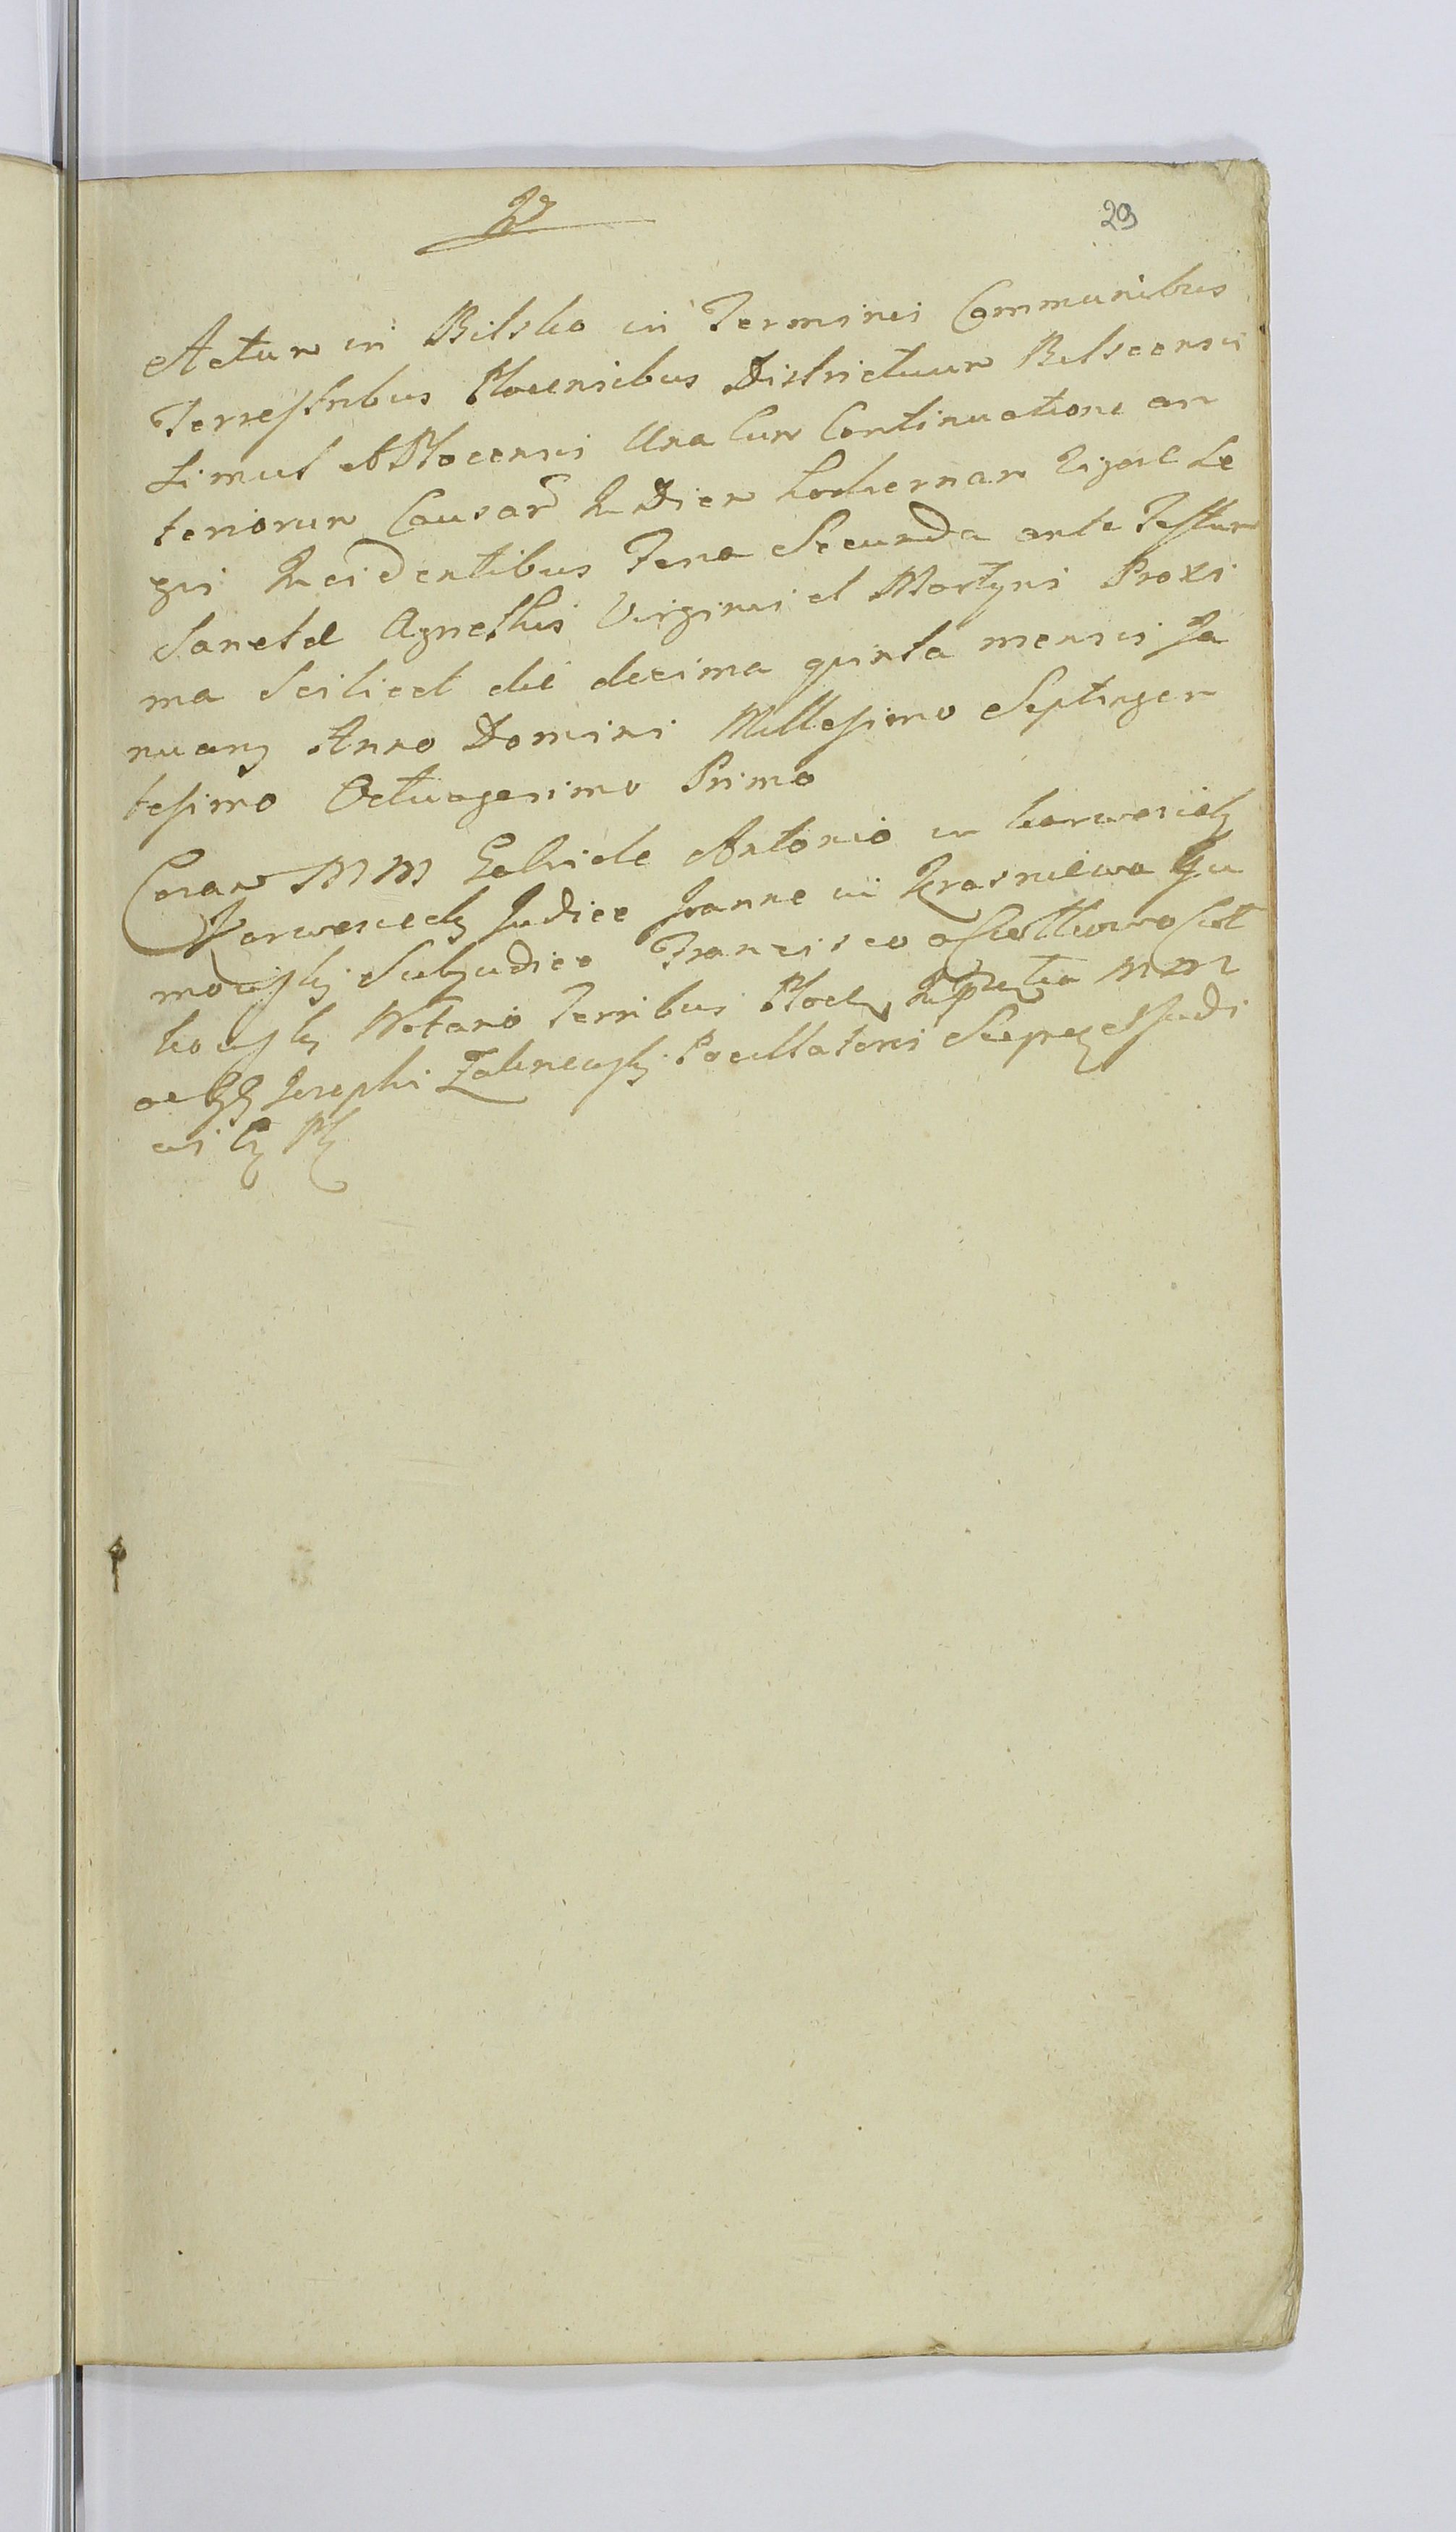 27
29
Actum in Bilsko in Terminis Communibus
Terrestribus Plocensibus Districtuum Bilscensis
Simul et Plocensis Una Cum Continuatione an
teriorum Causar In Diem hodiernam Vigore Le
gis Incidentibus Feria Secunda ante Festum
Sanctæ Agnethis Virginis et Martyris Proxi
ma Scilicet die decima quinta mensis Ja
nuarij Anno Domini Millesimo Septingen
tesimo Octuagesimo Primo
Coram MM Gabriele Antonio in Karwosieki
Karwosiecki Judice Joanne in Krasniewo
mowski Subjudice Francisco
kowski Notario Terribus Plocen MM
ac Josephi Zaleweski Pocillatoris Sierpcz et Judi